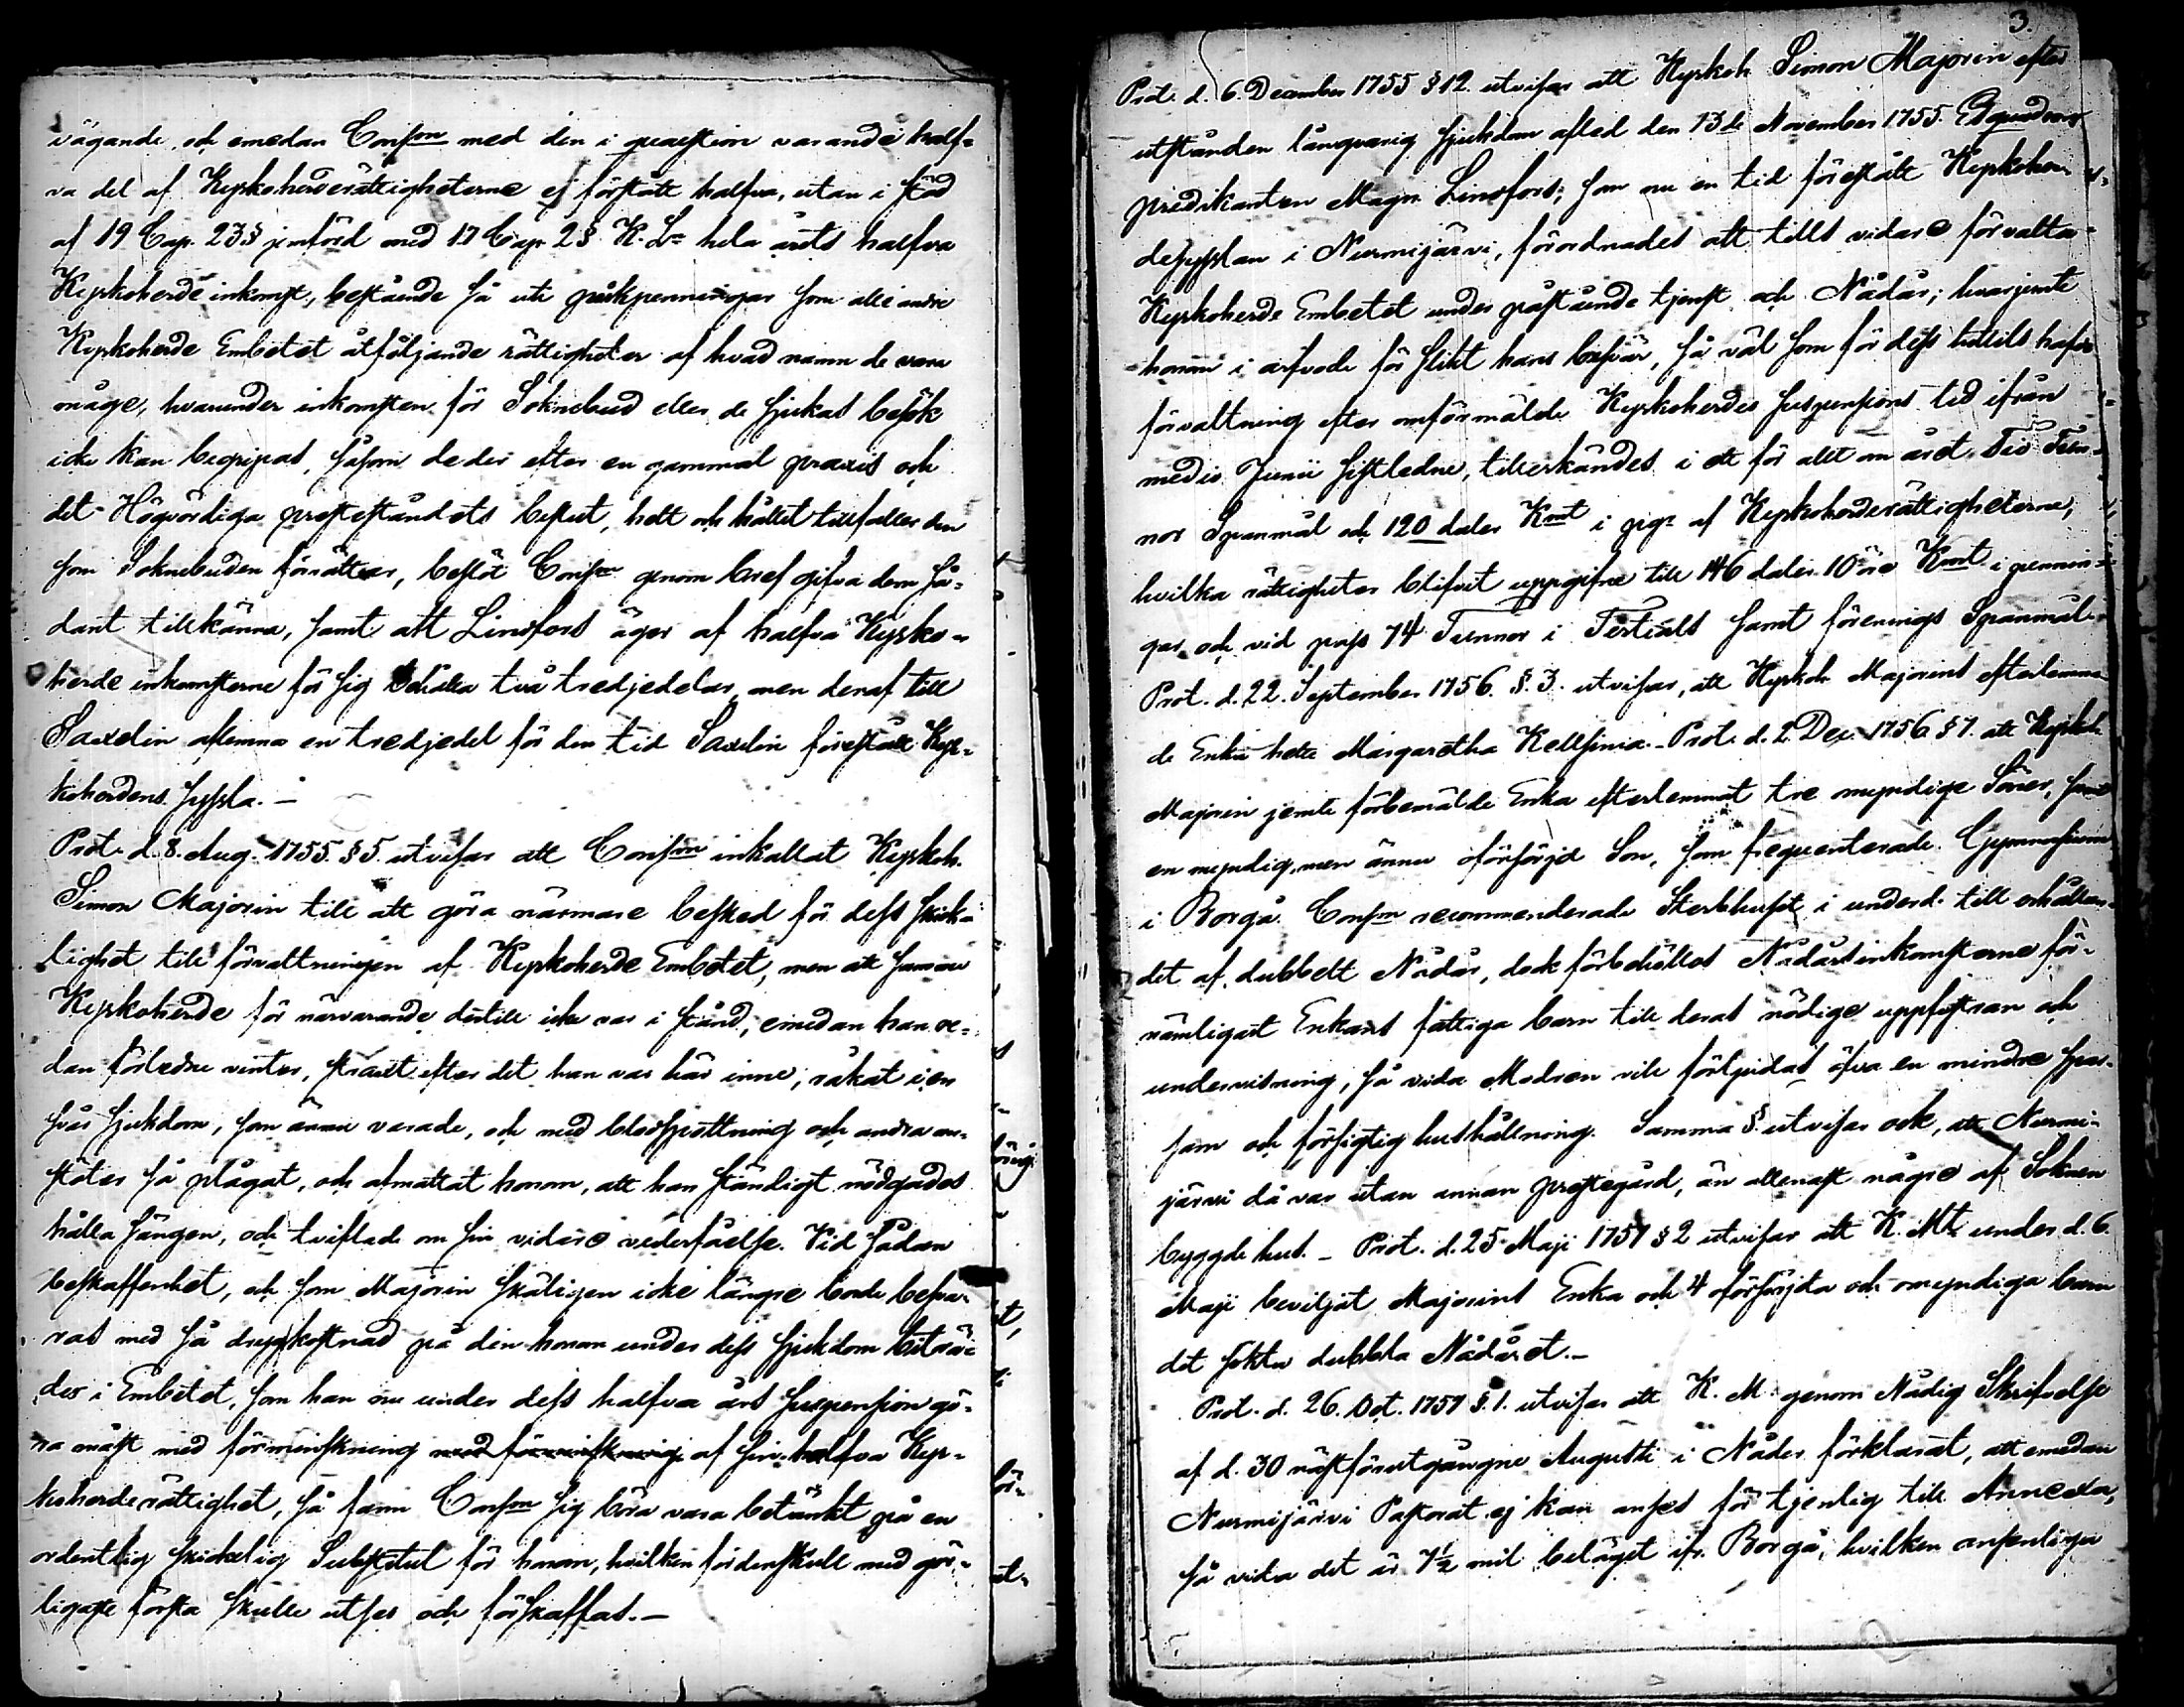 vägande, och emedan Consm med den i quaestion varande half-
va del af Kyrkoherderättigheterne ej förstått halfva, utan i stöd
af 19 Cap. 23 § jemförd med 17 Cap 2 § K. L. hela årets halfva
Kyrkoherde inkomst, bestående så uti påskpenningar som alle andre
Kyrkoherde Embetet åtföljande rättigheter af hvad namn de vara
måge, hvarunder inkomsten för Soknebud eller de sjukas besök
icke kan begripas, såsom de der efter en gammal praxis och
det Högvördiga presteståndets beslut, helt och hållet tillfaller den
som Soknebuden förrättar, beslöt Consm genom bref gifva dem så-
dant tillkänna, samt att Lindfors äger af halfva Kyrko-
herde inkomsterne för sig behålla två tredjedelar, men deraf till
Saxelin aflemna en tredjedel för den tid Saxelin förestått Kyr-
koherdens syssla. -
Prot. d. 8. Aug. 1755. § 5. utvisar att Consm inkallat Kyrkoh.
Simon Majorin till att göra närmare besked för dess skick-
lighet till förvaltningen af Kyrkoherde Embetet, men att samme
Kyrkoherde för närvarande dertill icke var i stånd, emedan han re-
dan förledne vinter, straxt efter det han var här inne, råkat i en
svår sjukdom, som ännu varade, och med blodspottning och andra an-
stöter så plågat, och afmattat honom, att han ständigt nödgades
hålla sängen, och tviflade om sin vidare vederfåelse. Vid sådan
beskaffenhet, och som Majorin skäligen icke längre borde besva-
ras med så dryg kostnad på den honom under dess sjukdom biträ-
der i Embetet, som han nu under dess halfva års suspension gö-
ra måst med förminskning med förminskning af sin halfva Kyr-
koherderättighet, så fann Consm sig böra vara betänkt på en
ordentlig skickelig Substitut för honom, hvilken fördenskull med gör-
ligaste första skulle utses och förskaffas. -
3.
Prot. d. 6. December 1755 § 12. utvisar att Kyrkoh. Simon Majorin efter
utstånden långvarig sjukdom afled den 13de November 1755.
predikanten Magn. Lindfors, som nu en tid förestått Kyrkoher-
desysslan i Nurmijärvi, förordnades att tills vidare förvalta
Kyrkoherde Embetet under påstående tjenst och Nådår; hvarjemte
honom i arfvode för slikt hans besvär, så väl som för dess hittills hafde
förvaltning efter omförmälde Kyrkoherdes suspensions tid ifrån
medio Junii sistledne, tillerkändes i ett för allt om året Tio Tun-
nor Spanmål och 120 daler Kmt i pgr af Kyrkoherderättigheterne,
hvilka rättigheter blifvit uppgifne till 146 daler 10 öre Kmt i pennin-
gar och vid pass 74 Tunnor i Tertials samt förenings Spanmål.
Prot. d. 22. September 1756. §. 3. utvisar, att Kyrkoh. Majorins efterlemna-
de Enka hette Margaretha Kellsinia. - Prot. d. 2 Dec. 1756 § 7. att Kyrkoh.
Majorin jemte förbemälde Enka efterlemnat tre myndige Söner, samt
en myndig, men ännu oförsörjd Son, som frequenterade Gymnasium
i Borgå. Consm recommenderade Sterbhuset i underd. till erhållan-
det af dubbelt Nådår, dock förbehölles Nådårsinkomsterne för-
nämligast Enkans fattiga barn till deras nödige uppfostran och
undervisning, så vida Modren vill förljudas öfva en mindre spar-
sam och försigtig hushållning. Samma §. utvisar ock, att Nurmi-
järvi då var utan annan prestegård, än allenast någre af Soknen
byggde hus. - Prot. d. 25 Maji 1757 § 2 utvisar att K. Mt. under d. 6.
Maji beviljat Majorins Enka och 4 oförsörjda och omyndiga barn
det sökta dubbla Nådåret. -
Prot. d. 26. Oct. 1757 §. 1. utvisar att K. M. genom Nådig Skrifvelse
af d. 30 nästförutgångne Augusti i Nåder förklarat, att emedan
Nurmijärvi Pastorat ej kan anses för tjenlig till Annexa,
så vida det är 7½ mil beläget ifr. Borgå, hvilken ansenliga